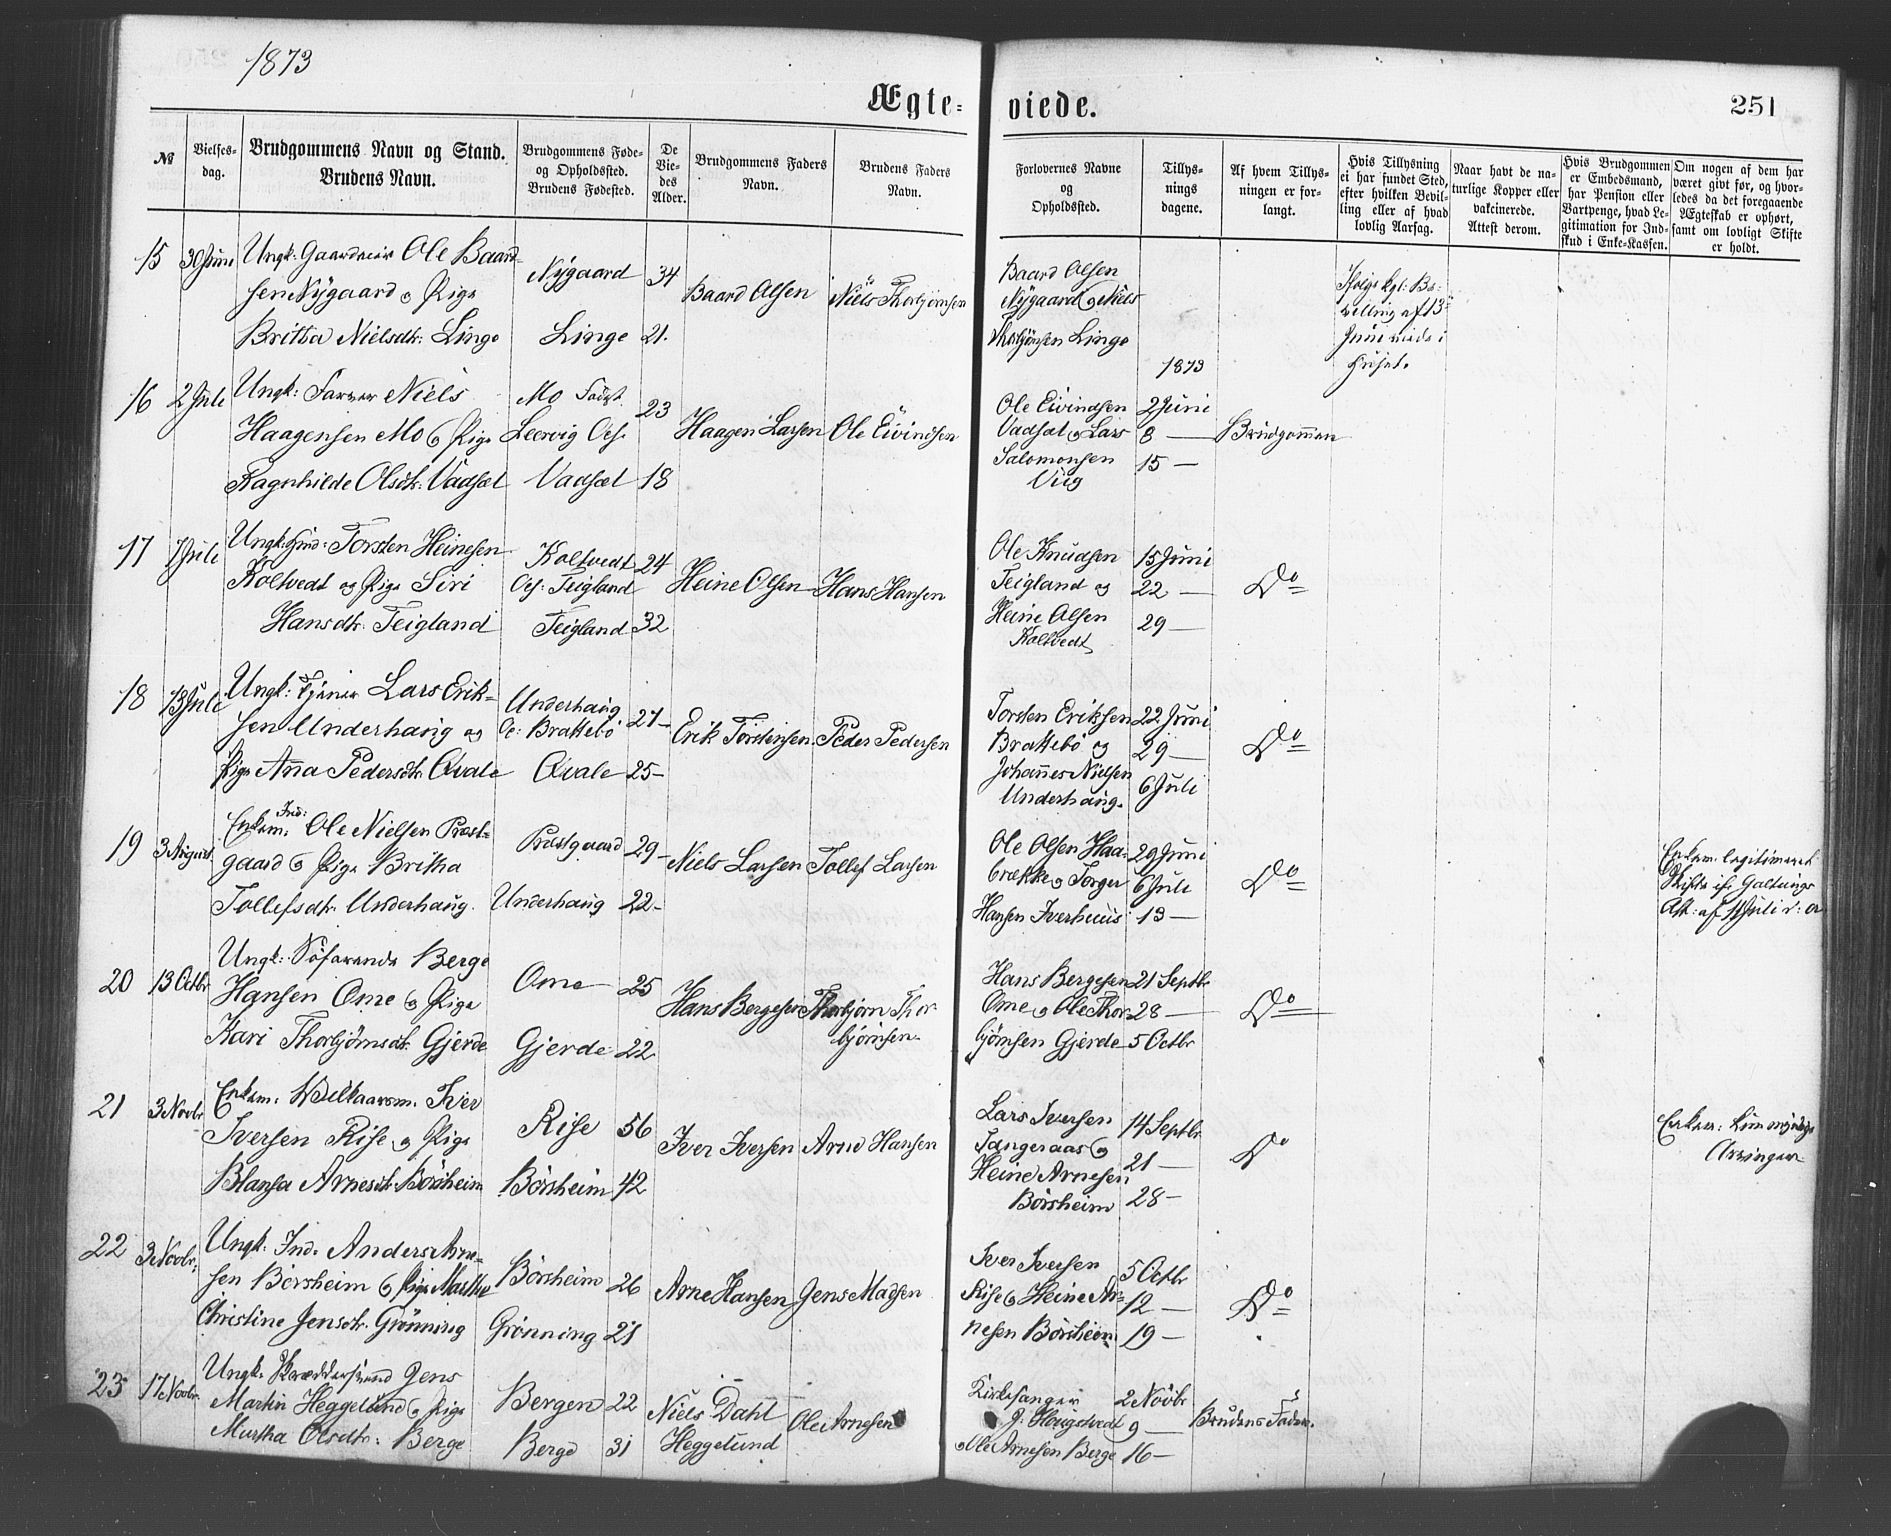 1873
Ægte=
viede.
251
№
Vielses=
dag.
Brudgommens Navn og Stand.
Brudens Navn.
Brudgommens Føde=
og Opholdsted.
Brudens Fødested.
De
Vie=
des
Alder.
Brudgommens Faders
Navn.
Brudens Faders
Navn.
Forlovernes Navne
og
Opholdsted.
Tillys=
nings
dagene.
Af hvem Tillys=
ningen er for=
langt.
Hvis Tillysning
ei har fundet Sted,
efter hvilken Bevil=
ling eller af hvad
lovlig Aarsag.
Naar havt de na=
turlige Kopper eller
vakcinerede.
Attest derom.
Hvis Brudgommen
er Embedsmand,
har Pension eller
Vartpenge, hvad Le=
gitimation for Ind=
skud i Enke=Kassen.
Om nogen af dem har
været givt før, og hvor=
ledes da det foregaaende
Ægteskab er ophørt,
samt om lovligt Skifte
er holdt.
15
30 Juni
Ungk: Gaardmand Ole Baard=
sen Nygaard og Pige
Britha Nielsdtr: Linge
Nygaard
Linge
34
21.
Baard Olsen
Niels Thorbjørnsen
Baard Olsen
Nygaard og Niels
Thorbjørnsen Linge
1873
Ifølge kgl: Be=
villing af 13
Juni viede i
Huset.
16
2 Juli
Ungk: Farver Niels
Haagensen Mo og Pige
Ragnhilde Olsdtr: Vadset
Mo Født
Leervig
Vadset
23
18
Haagen Larsen
Ole Eivindsen
Ole Eivindsen
Vadset og Lars
Salomonsen
Viig
2 Juni
8 —
15 —
Brudgommen
17
7 Juli
Ungk: Ind: Torsten Heinesen
Koltvedt og Pige Siri
Hansdtr: Teigland
Koltvedt
Teigland
Teigland
24
32
Heine Olsen
Hans Hansen
Ole Knudsen
Teigland og
Heine Olsen
Koltvedt
15 Juni
22 —
29 —
Do
18
13 Juli
Ungk: Tjener Lars Erik=
sen Underhaug og
Pige Anna Pedersdtr: Qvale
Underhaug
Brattebø
Qvale
27
25
Erik Torstensen
Peder Pedersen
Torsten Eriksen
Brattebø og
Johannes Nielsen
Underhaug.
22 Juni
29 —
6 Juli
Do
19
3 August
Enkem: Ind: Ole Nielsen Præst=
gaard og Pige Britha
Tollefsdtr: Underhaug.
Præstgaard
Underhaug
29
22
Niels Larsen
Tollef Larsen
Ole Olsen Haa=
brække og Torger
Hansen Iverhuus
29 Juni
6 Juli
13 —
Do
Enkem: legitimeret
Skifte
Galtungs
Att: af
20
13 Octbr
Ungk: Søfarende Berge
Hansen Ome og Pige
Kari Thorbjørnsdtr: Gjerde
Ome
Gjerde
25
22
Hans Bergesen
Thorbjørn Thor=
bjørnsen
Hans Bergesen
Ome og Ole Thor=
bjørnsen Gjerde
21 Septbr
28 —
5 Octbr
Do
21
3 Novbr
Enkem: Velkaarsm. Iver
Iversen Rise og Pige
Blansa Arnesdtr: Børsheim
Rise
Børsheim
56
42
Iver Iversen
Arne Hansen
Lars Iversen
Tangeraas og
Heine Arnesen
Børsheim
14 Septbr
21 —
28 —
Do
Enkem: kun myndige
Arvinger
22
3 Novbr.
Ungk: Ind: Anders Arne=
sen Børsheim og Pige Marthe
Christine Jensdtr: Grønning
Børsheim
Grønning
26
21
Arne Hansen
Jens Madsen
Iver Iversen
Rise og Heine Ar=
nesen Børsheim
5 Octbr
12 —
19 —
Do
23
17 Novbr.
Ungk: Skræddersvend Jens
Martin Heggelund og Pige
Martha Olsdtr: Berge
Bergen
Berge
22
31
Niels Dahl
Heggelund
Ole Arnesen
Kirkesanger
J: Haugstvedt
og Ole Arnesen Berge
2 Novbr
9 —
16 —
Brudens Fader.